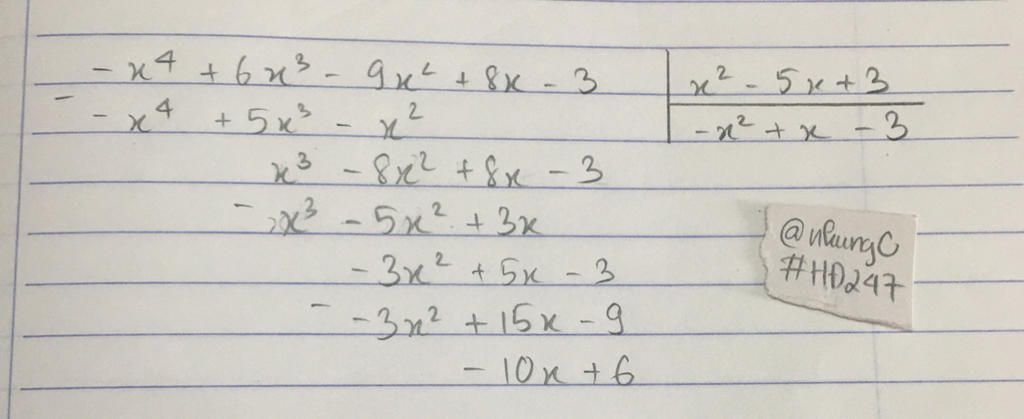 - x⁴ + 6x³ - 9x² + 8x - 3 | x² - 5x + 3
-
- x⁴ + 5x³ - x² | -x² + x - 3
x³ - 8x² + 8x - 3
- x³ - 5x² + 3x
- 3x² + 5x - 3
- - 3x² + 15x - 9
- 10x + 6
@nhungC
#HĐ247